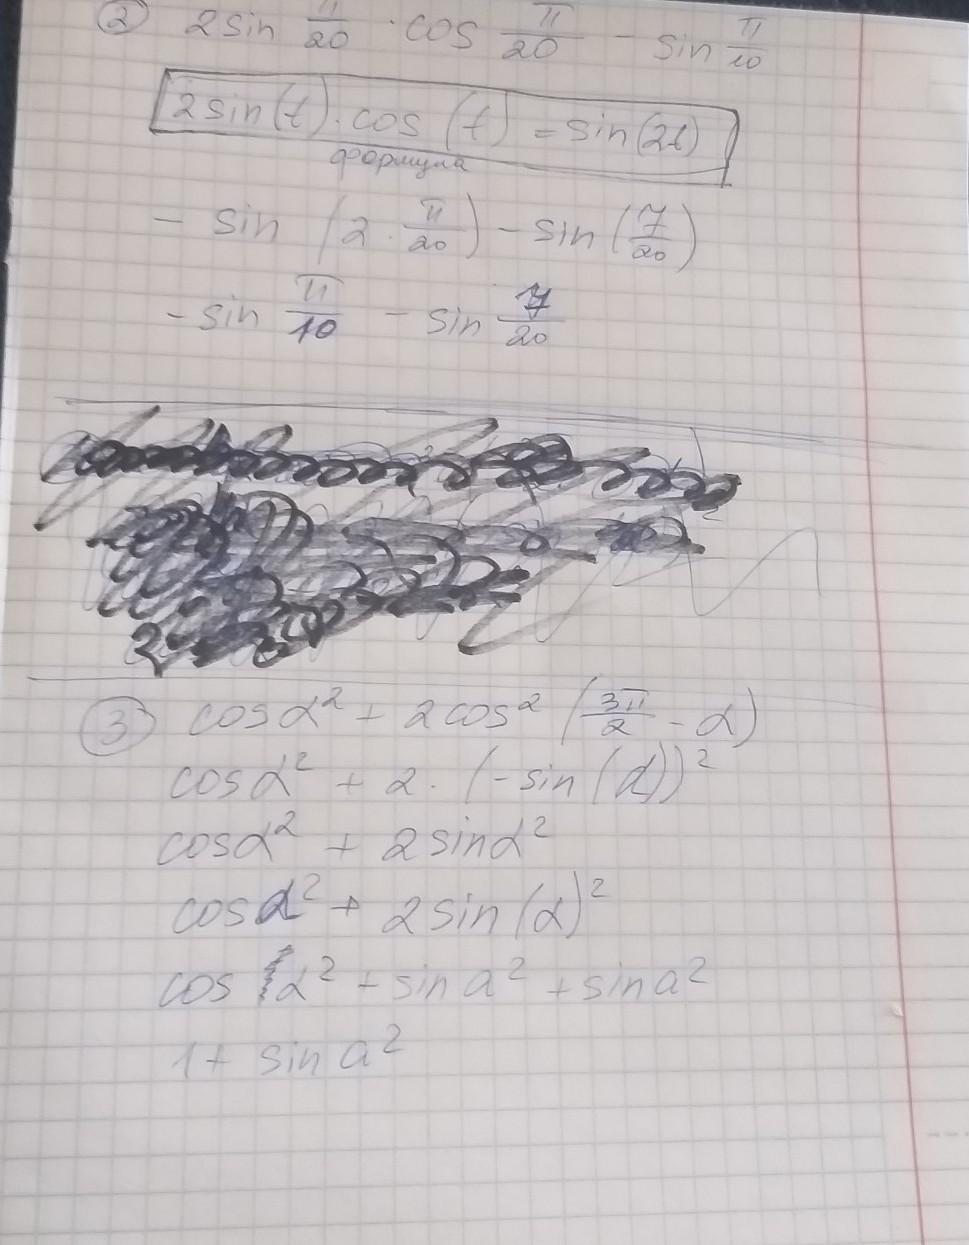 ② 2sin π/20 · cos π/20 - sin π/10
2sin(t)·cos(t) = sin(2t)
формула
- sin (2·π/20) - sin (7/20)
- sin π/10 - sin 7/20
③ cosα² + 2cos² (3π/2 - α)
cosα² + 2·(-sin(α))²
cosα² + 2sinα²
cosα² + 2sin(α)²
cos α² + sin a² + sin a²
1+ sin a²